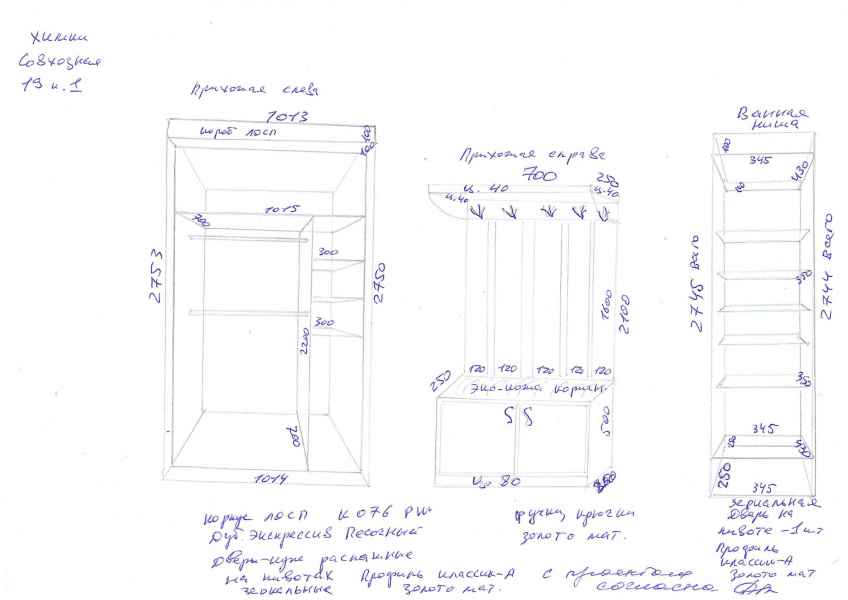 Химки
Совхозная
19 к. 1
Прихожая слева
1013
короб лдсп
100
100
1015
700
300
300
2200
700
2753
2750
1014
Прихожая справа
700
250
ц. 40
ц. 40
ц. 40
1600
2100
120 120 120 120 120
250
эко-кожа коричн.
500
ц. 80
Ванная
ниша
100
345
430
2745 всего
2744 всего
350
350
345
430
250
345
корпус лдсп К076 PW
Дуб Экспрессив Песочный
Двери-купе распашные
на пивотах Профиль классик-А
зеркальные золото мат.
ручки, крючки
золото мат.
зеркальная
Дверь на
пивоте - 1 шт
Профиль
классик-А
золото мат
с проектом
согласна